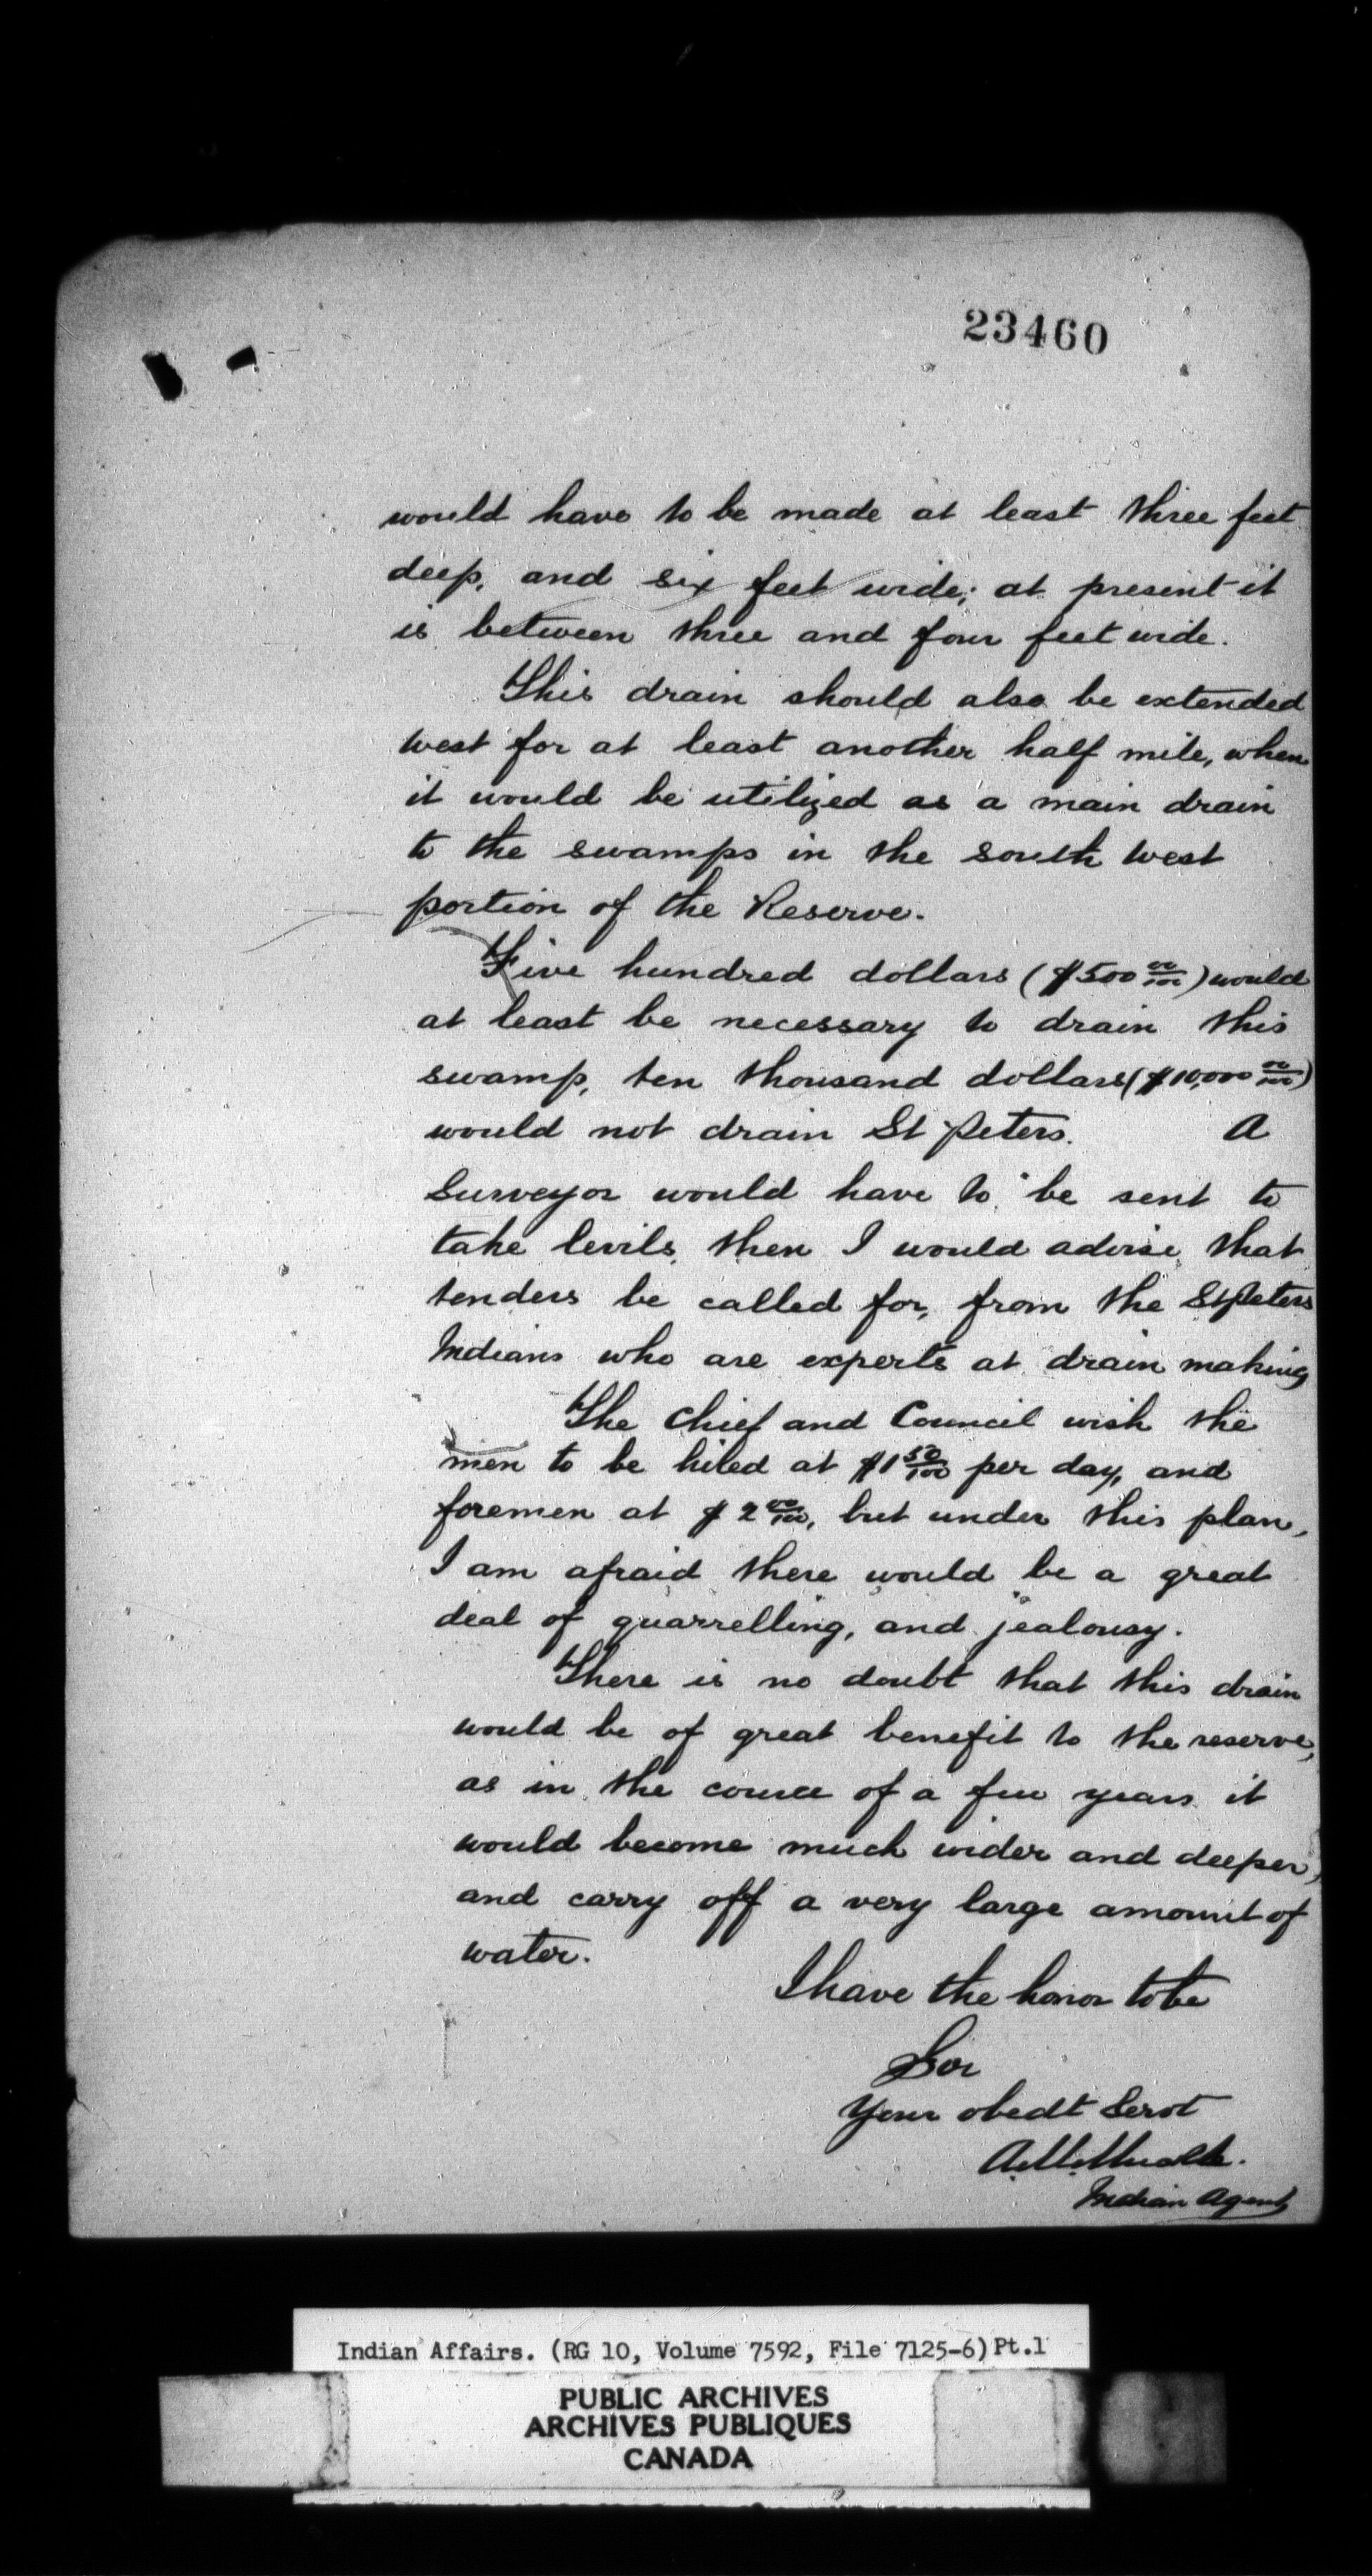 23460
would have to be made at least three feet
deep, and six feet wide; at present it
is between three and four feet wide.
This drain should also be extended
west for at least another half mile, when
it would be utilized as a main drain
to the swamps in the south west
portion of the Reserve.
Five hundred dollars ($500 00/100) would
at least be necessary to drain this
swamp, ten thousand dollars ($10,000 00/100)
would not drain St Peters. A
Surveyor would have to be sent to
take levils, then I would advise, that
tenders be called for, from the St Peters
Indians who are experts at drain making
The Chief and Council wish the
men to be hired at $1 50/100 per day, and
foremen at $2 00/100, but under this plan,
I am afraid there would be a great
deal of quarrelling, and jealousy.
There is no doubt that this drain
would be of great benefit to the reserve,
as in the course of a few years it
would become much wider and deeper,
and carry off a very large amount of
water.
I have the honor to be
Sir
Your obedt Servt
Indian Agent
Indian Affairs. (RG 10, Volume 7592, File 7125-6) Pt.1
PUBLIC ARCHIVES
ARCHIVES PUBLIQUES
CANADA